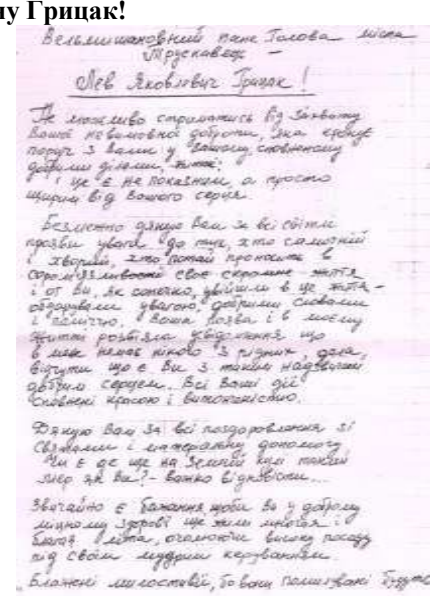 му Грицак!
Вельмишановний пане Голова міста
Трускавець –
Лев Яковлевич Грицак!
Не можливо стриматись від захвату
Вашої невимовної доброти, яка крокує
поруч з Вами у Вашому, сповненому
добрими ділами, житті.
І це є не показним, а просто
щирим від Вашого серця.
Безмежно дякую Вам за всі світлі
прояви уваги до тих, хто самотній
і хворий, хто потай проносить в
сором'язливості своє скромне життя
і от Ви, як сонечко, увійшли в це життя –
обдарували увагою, добрими словами
і поміччю. Ваша поява і в моєму
житті розвіяла що
в мене немає нікого з рідних, дала
відчути що є Ви з таким надзвичайно
добрим серцем. Всі Ваші дії
сповнені красою і витонченістю.
Дякую Вам за всі поздоровлення зі
святами і матеріальну допомогу.
Чи є де ще на земній кулі такий
мер як Ви? – важко відповісти...
Звичайно є бажання, щоби Ви у доброму
міцному здорові ще жили многая і
благая літа, очолюючи високу посаду
під своїм мудрим керуванням.
Блаженні милостивії, бо вони помилувані будуть